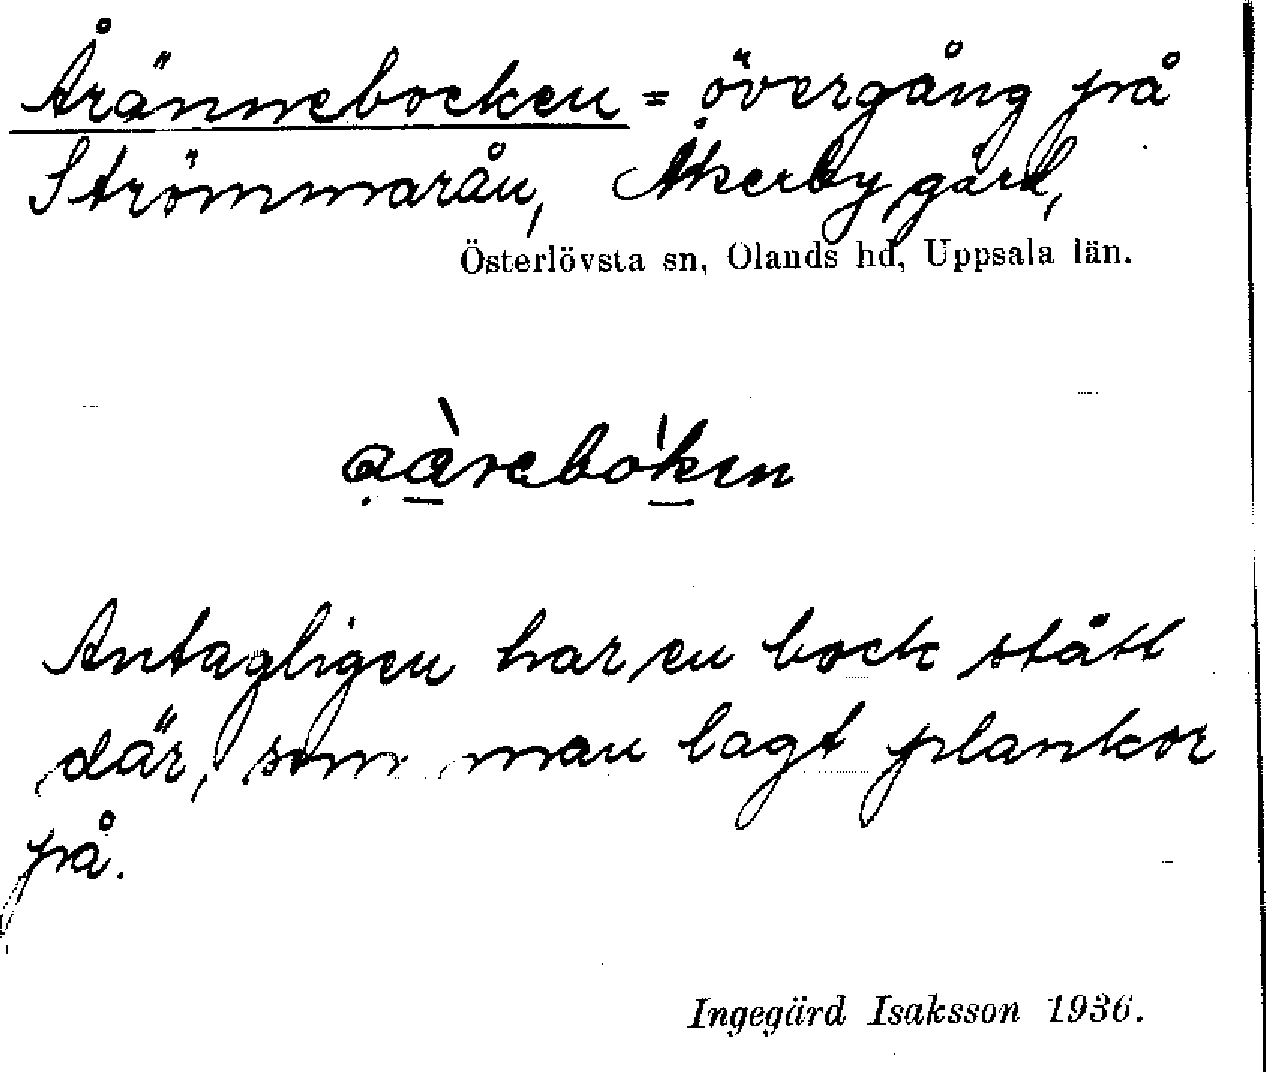 Årännebocken = övergång på
Strömmarån, Åkerby gård,
Österlövsta sn, Olands hd, Uppsala län.
Antagligen har en bock stått
där, som man lagt plankor
på.
Ingegärd Isaksson 1936.